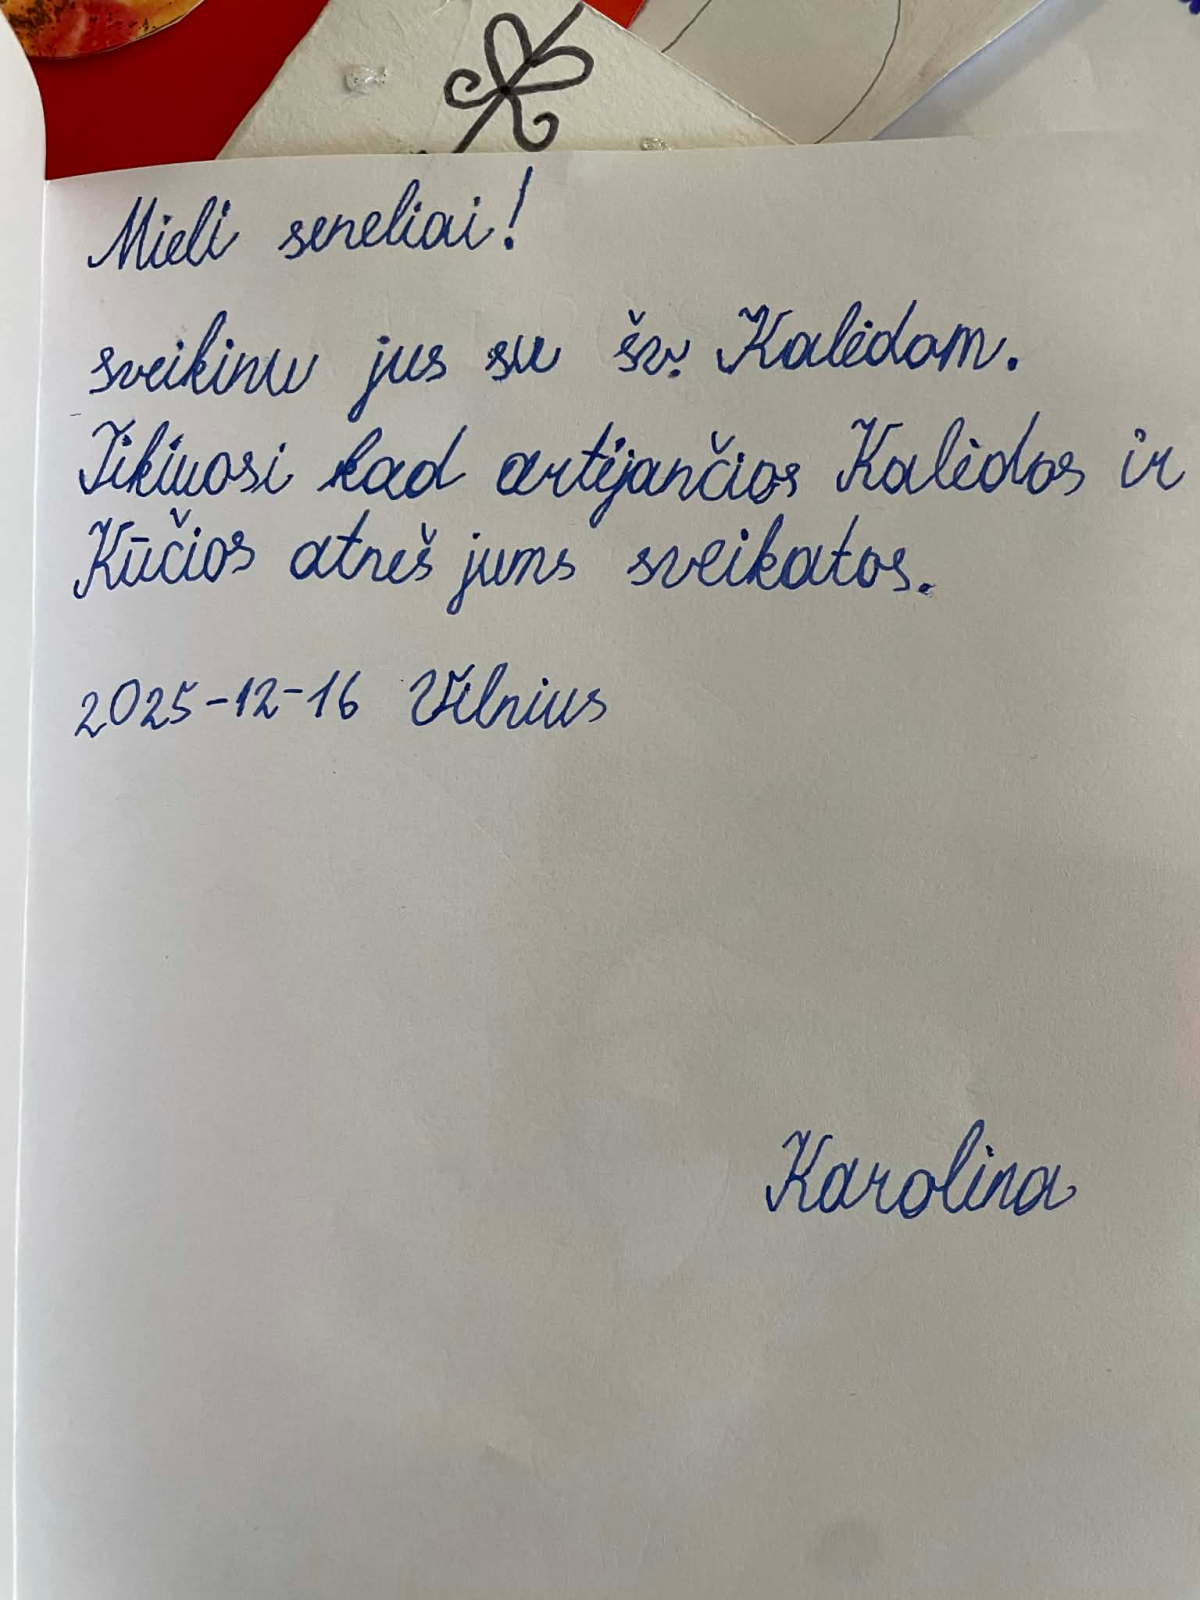 Mieli seneliai!
sveikinu jus su šv. Kalėdom.
Tikiuosi kad artėjančios Kalėdos ir
Kūčios atneš jums sveikatos.
2025-12-16 Vilnius
Karolina